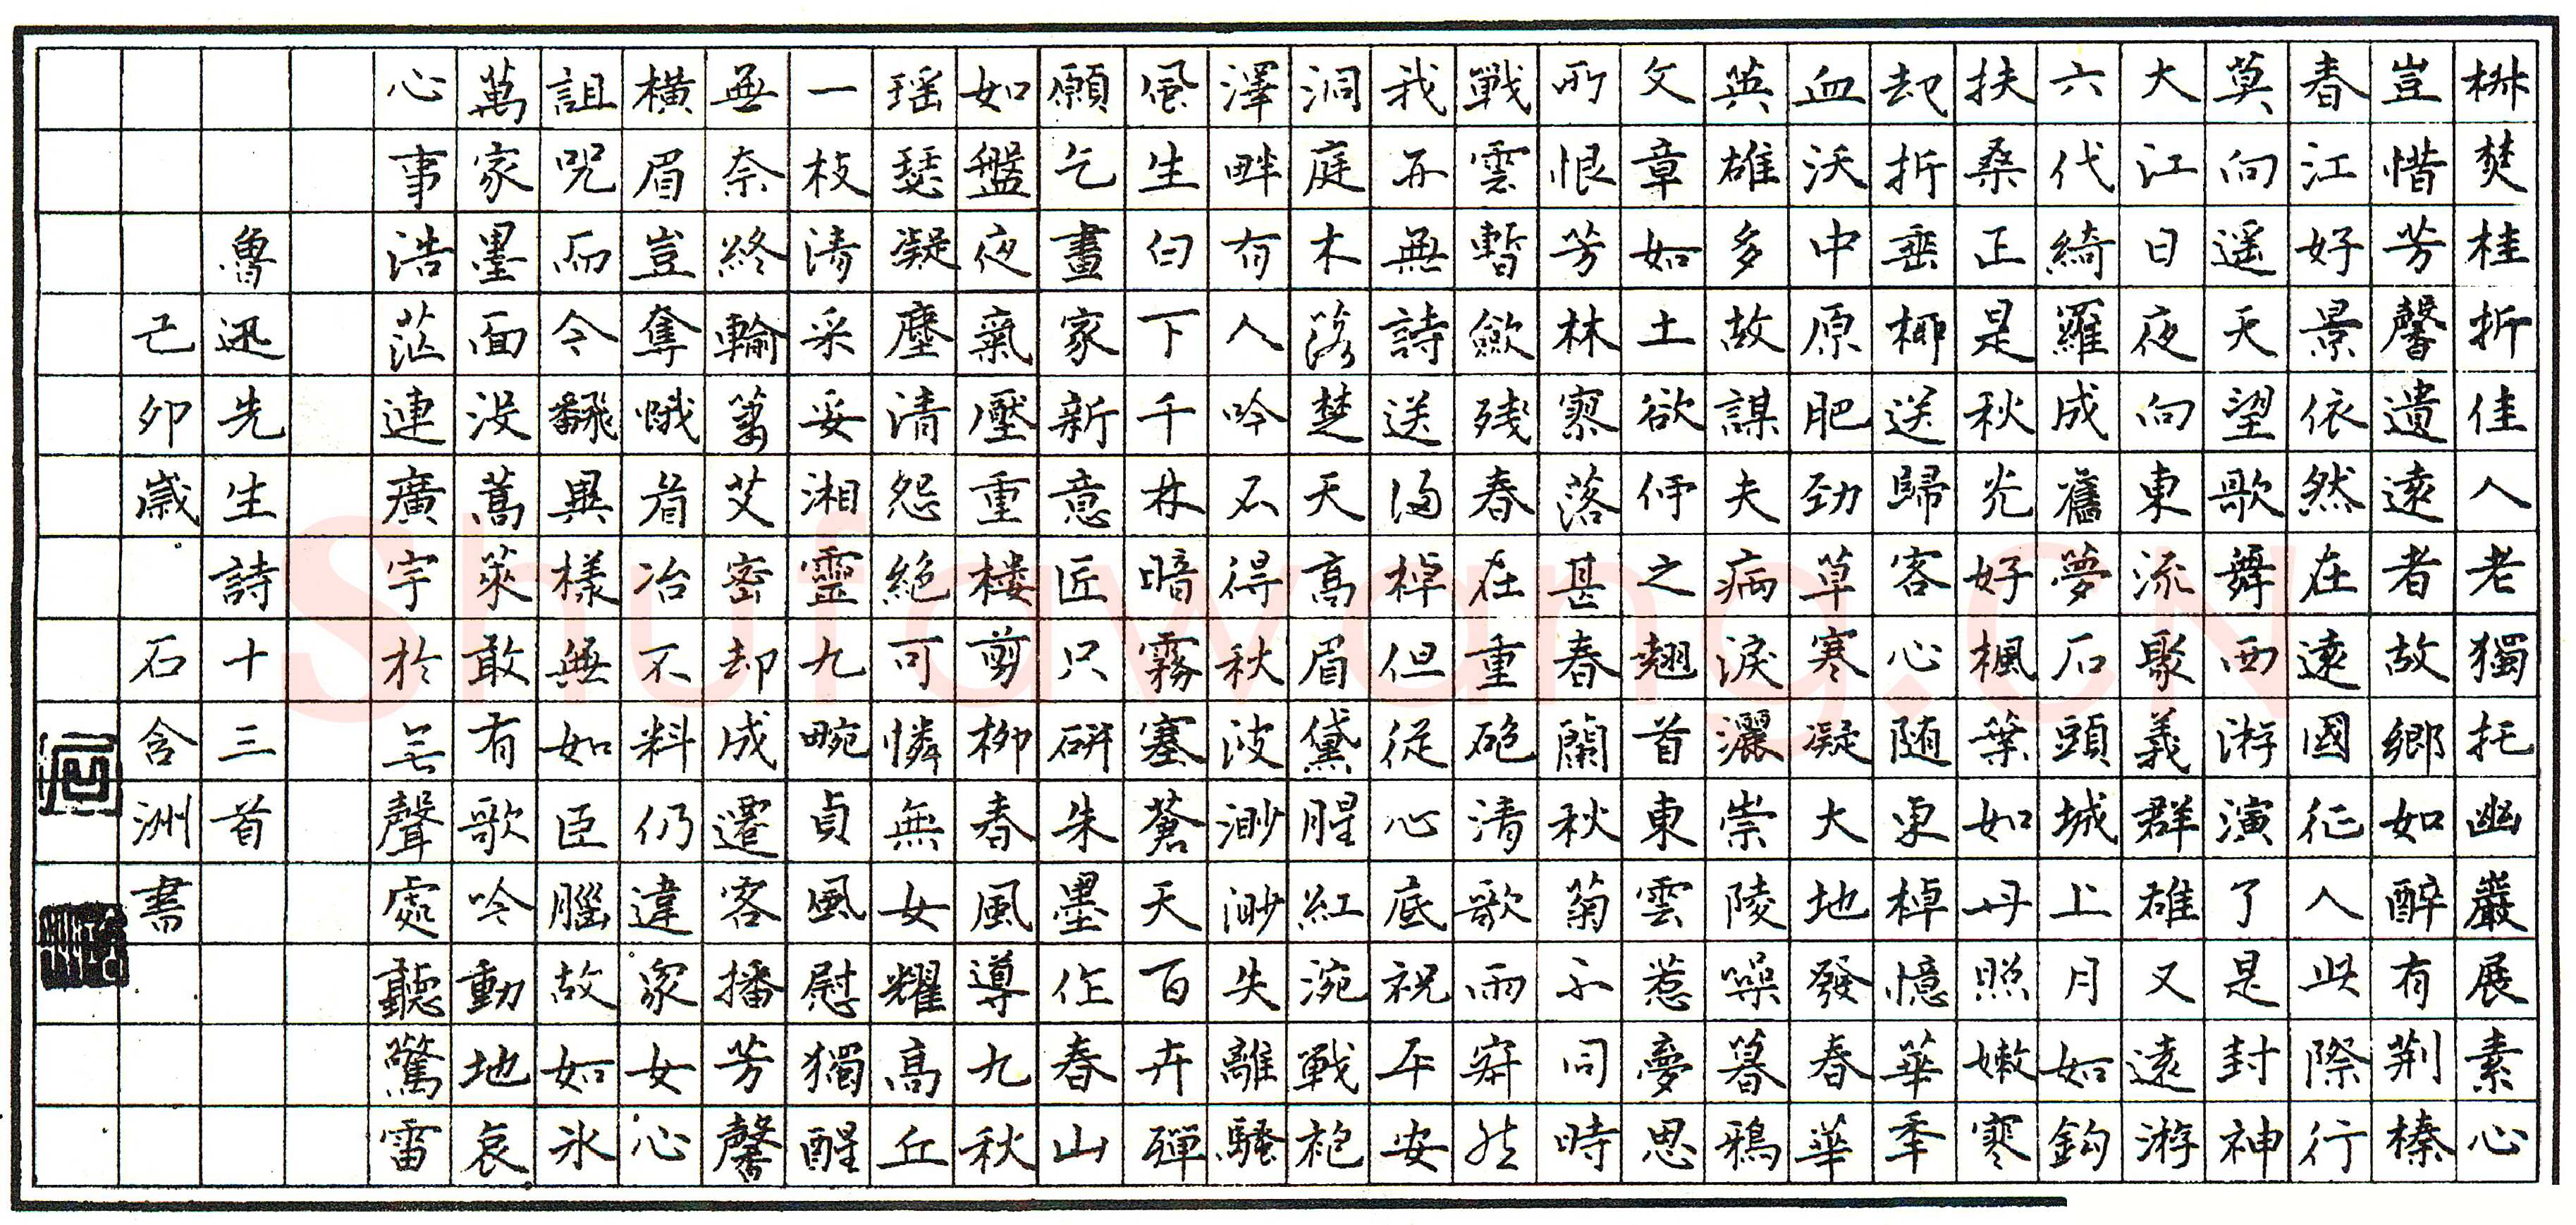 椒焚桂折佳人老獨托幽巖展素心
豈惜芳馨遺遠者故鄉如醉有荆榛
春江好景依然在遠國征人此際行
莫向遥天望歌舞西游演了是封神
大江日夜向東流聚義群雄又遠游
六代綺羅成舊夢石頭城上月如鈎
扶桑正是秋光好楓葉如丹照嫩寒
却折垂楊送歸客心随東棹憶華年
血沃中原肥勁草寒凝大地發春華
英雄多故謀夫病淚灑崇陵噪暮鴉
文章如土欲何之翹首東雲惹夢思
所恨芳林寥落甚春蘭秋菊不同時
戰雲暫斂殘春在重砲清歌兩寂然
我亦無詩送歸棹但從心底祝平安
洞庭木落楚天高眉黛腥紅涴戰袍
澤畔有人吟不得秋波渺渺失離騷
風生白下千林暗霧塞蒼天百卉殫
願乞畫家新意匠只研朱墨作春山
如盤夜氣壓重樓剪柳春風導九秋
瑶瑟凝塵清怨絶可憐無女耀高丘
一枝清采妥湘靈九畹貞風慰獨醒
無奈終輸蕭艾密却成遷客播芳馨
横眉豈奪蛾眉冶不料仍違衆女心
詛咒而今翻異樣無如臣腦故如冰
萬家墨面没蒿萊敢有歌吟動地哀
心事浩茫連廣宇於無聲處聽驚雷
魯迅先生詩十三首
己卯歲 石含洲書
Shufawang.CN